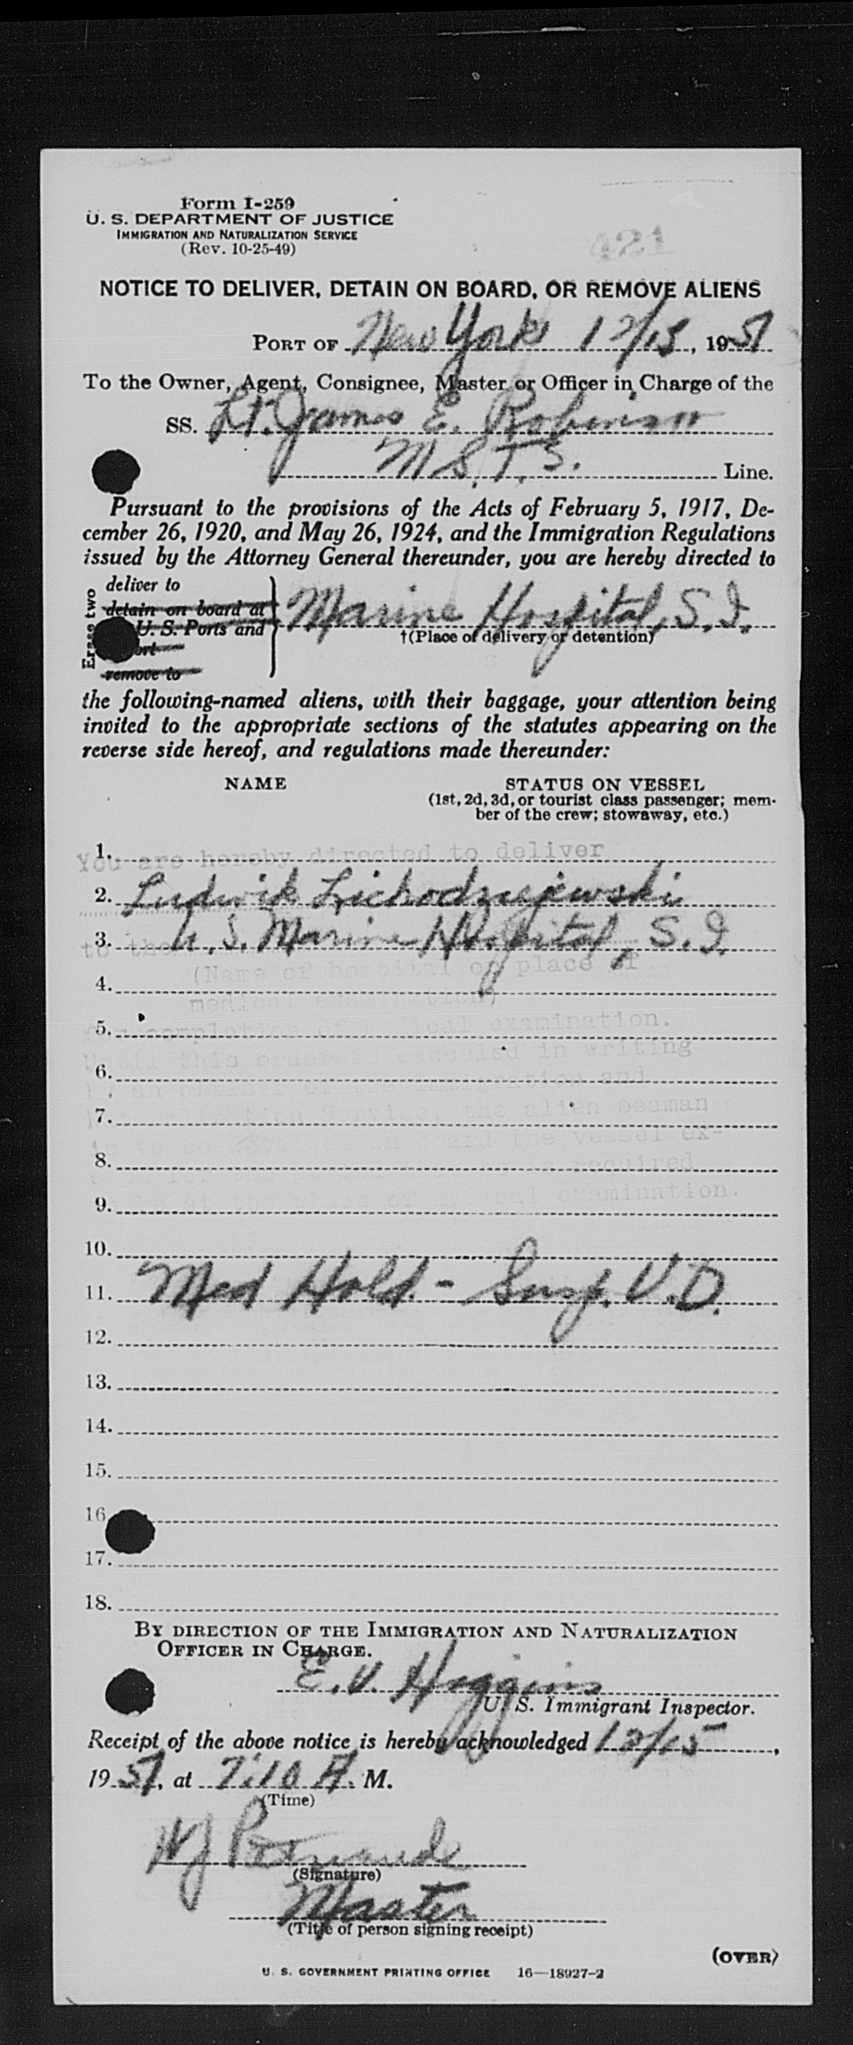 Form I-259
U. S. DEPARTMENT OF JUSTICE
IMMIGRATION AND NATURALIZATION SERVICE
(Rev. 10-25-49)
421
NOTICE TO DELIVER, DETAIN ON BOARD, OR REMOVE ALIENS
PORT OF New York 12/15, 1951
To the Owner, Agent, Consignee, Master or Officer in Charge of the
SS. Lt. James E. Robinson
M.S.T.S. Line.
Pursuant to the provisions of the Acts of February 5, 1917, De-
cember 26, 1920, and May 26, 1924, and the Immigration Regulations
issued by the Attorney General thereunder, you are hereby directed to
Erase two
deliver to
detain on board at
U. S. Ports and
remove to
Marine Hospital, S.I.
†(Place of delivery or detention)
the following-named aliens, with their baggage, your attention being
invited to the appropriate sections of the statutes appearing on the
reverse side hereof, and regulations made thereunder:
NAME STATUS ON VESSEL
(1st, 2d, 3d, or tourist class passenger; mem-
ber of the crew; stowaway, etc.)
1.
You are hereby directed to deliver
2. Ludwik Lichodziejewski
3. U.S. Marine Hospital, S.I.
to the
(Name of hospital or place of
4.
medical examination)
5.
completion of medical examination.
this canceled in writing
6.
and
7.
the alien seaman
8.
board the vessel ex-
required
9.
examination.
10.
11. Med Hold - Susp. V.D.
12.
13.
14.
15.
16
17.
18.
BY DIRECTION OF THE IMMIGRATION AND NATURALIZATION
OFFICER IN CHARGE.
E. V. Higgins
U. S. Immigrant Inspector.
Receipt of the above notice is hereby acknowledged 12/15,
1951, at 7:10 A. M.
(Time)
(Signature)
Master
(Title of person signing receipt)
(OVER)
U. S. GOVERNMENT PRINTING OFFICE 16—18927-2